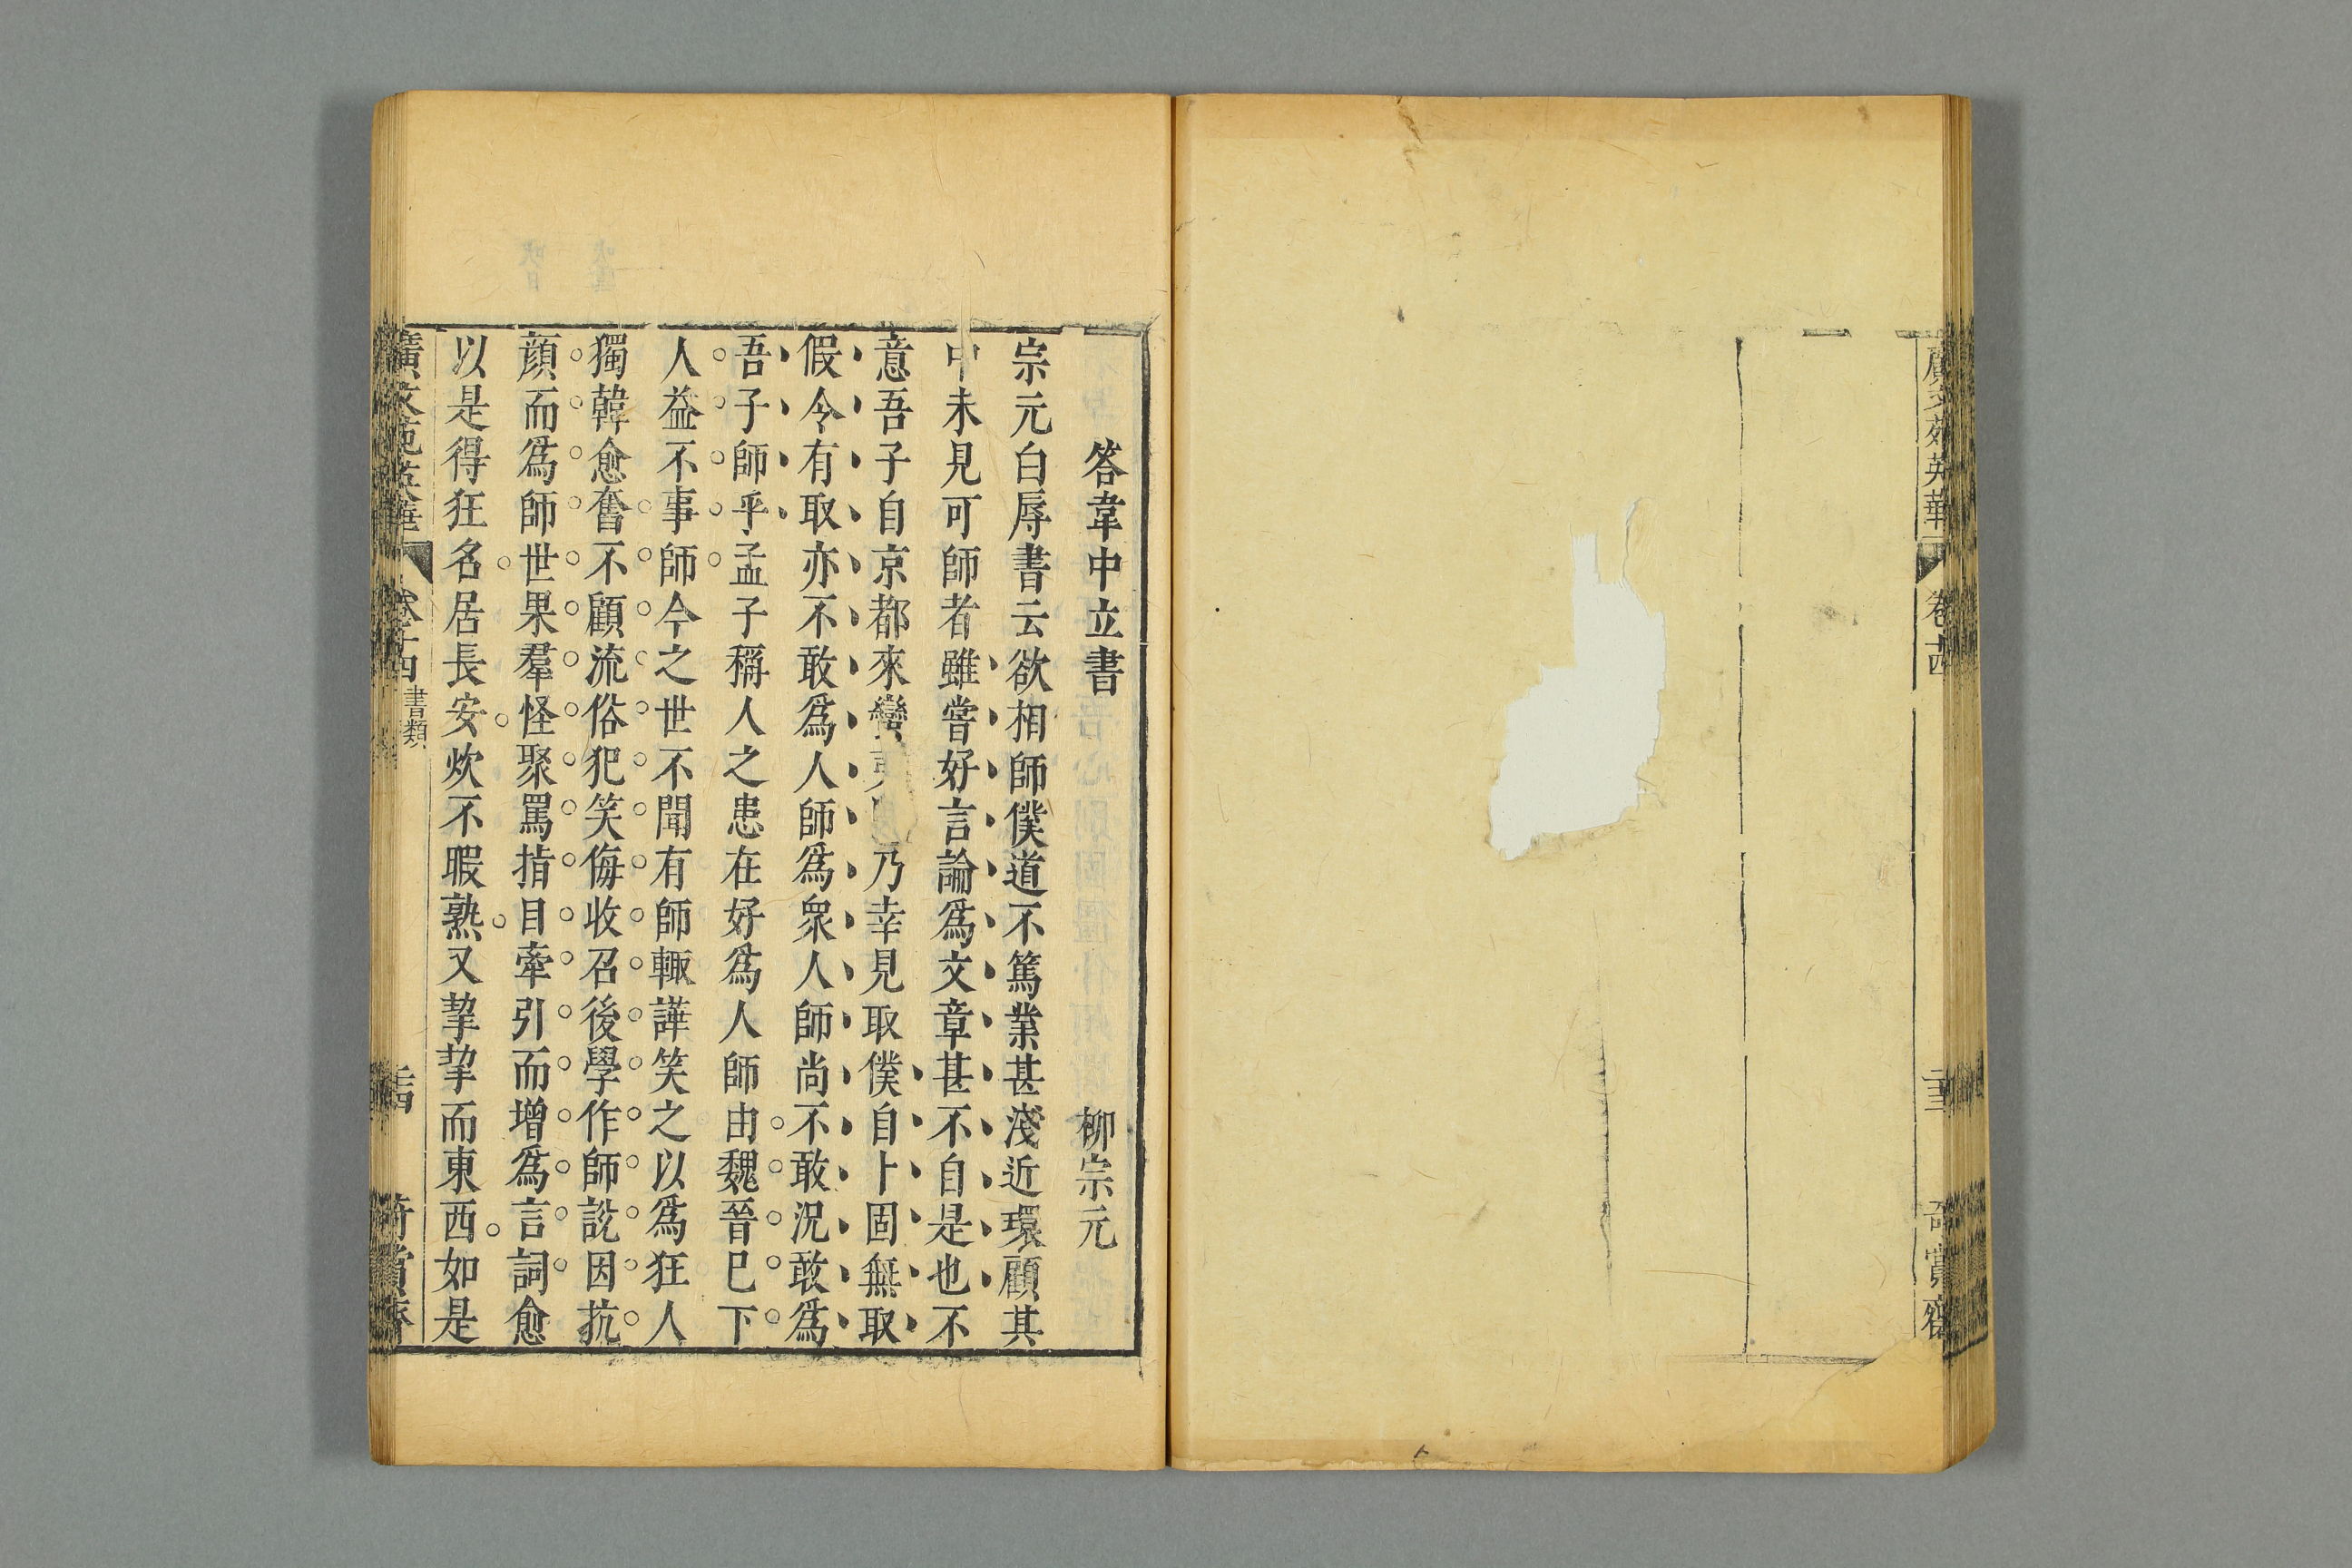 廣文苑英華
卷十四
二十三
奇賞齋
答韋中立書
柳宗元
宗元白辱書云欲相師僕道不篤業甚淺近環顧其
中未見可師者雖嘗好言論爲文章甚不自是也不
意吾子自京都來蠻夷間乃幸見取僕自卜固無取
假令有取亦不敢爲人師爲衆人師尚不敢況敢爲
吾子師乎孟子稱人之患在好爲人師由魏晉已下
人益不事師今之世不聞有師輒譁笑之以爲狂人
獨韓愈奮不顧流俗犯笑侮收召後學作師說因抗
顏而爲師世果羣怪聚罵指目牽引而增爲言詞愈
以是得狂名居長安炊不暇熟又挈挈而東西如是
廣文苑英華
卷十四
書類
二十四
奇賞齋